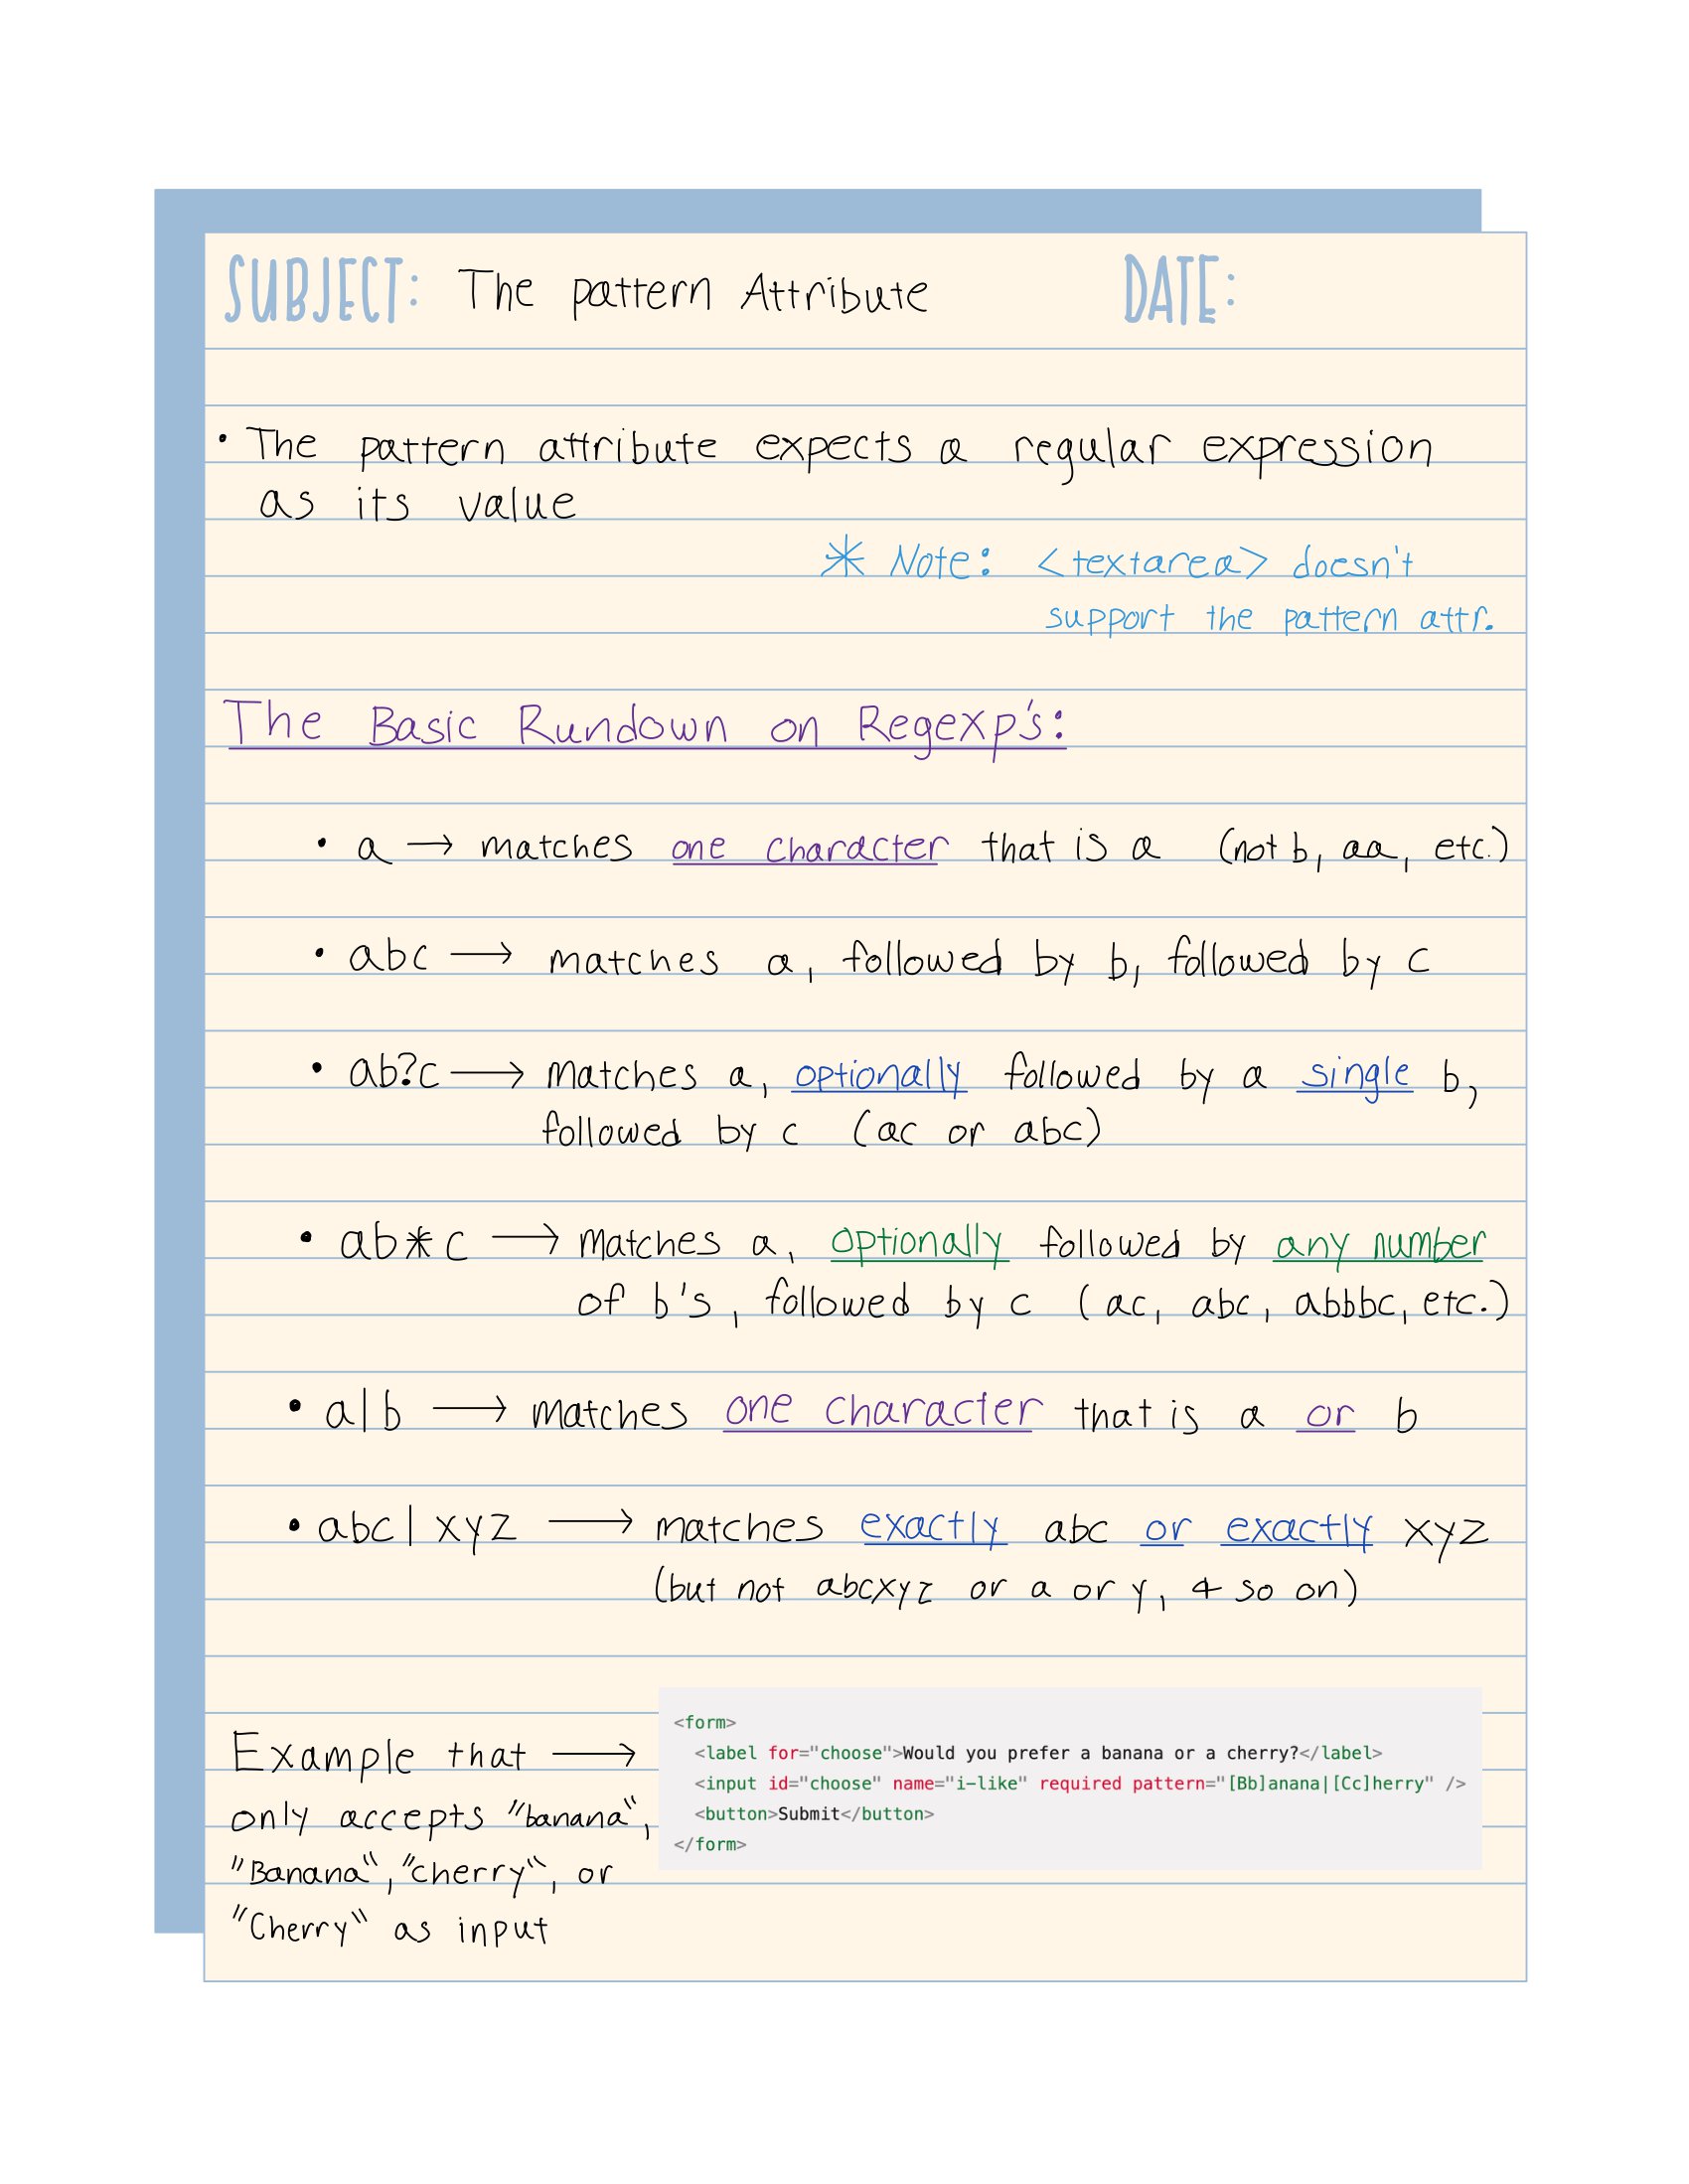 SUBJECT: The pattern Attribute DATE:
• The pattern attribute expects a regular expression
as its value
* Note: <textarea> doesn't
support the pattern attr.
The Basic Rundown on Regexp's:
• a → matches one character that is a (not b, aa, etc.)
• abc → matches a, followed by b, followed by c
• ab?c → matches a, optionally followed by a single b,
followed by c (ac or abc)
• ab*c → matches a, optionally followed by any number
of b's, followed by c (ac, abc, abbbc, etc.)
• a|b → matches one character that is a or b
• abc|xyz → matches exactly abc or exactly xyz
(but not abcxyz or a or y, & so on)
Example that →
only accepts "banana",
"Banana", "cherry", or
"Cherry" as input
<form>
<label for="choose">Would you prefer a banana or a cherry?</label>
<input id="choose" name="i-like" required pattern="[Bb]anana|[Cc]herry" />
<button>Submit</button>
</form>